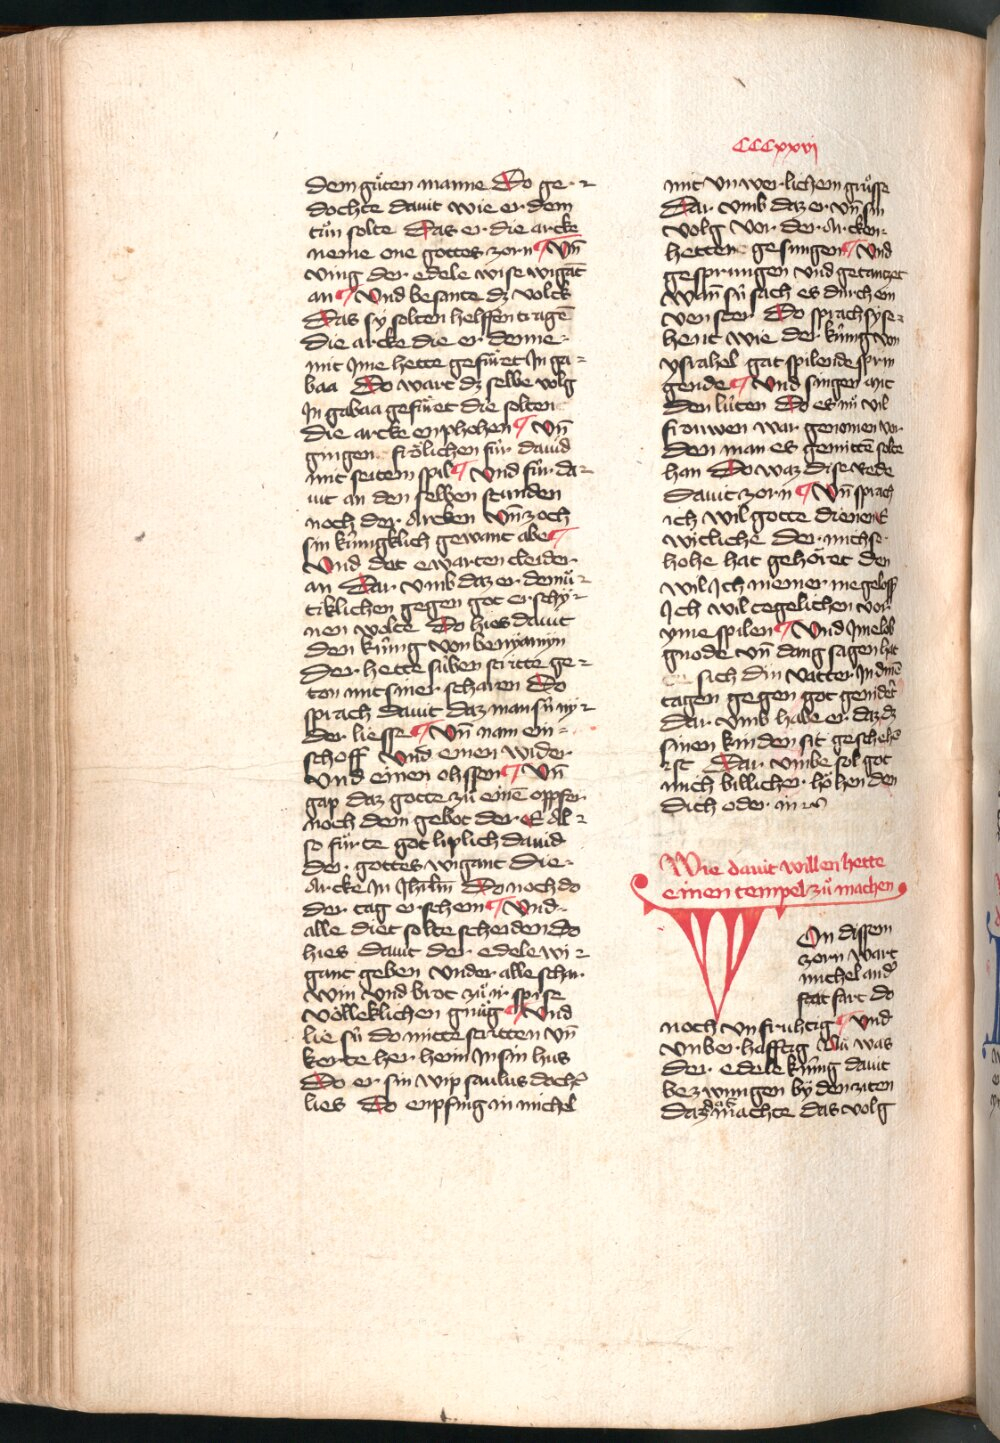 CCCxxvi
dem guͤten manne Do ge-
dochte dauit wie er dem
tuͤn solte Das er die arcke
neme one gottes zorn ¶ Vn̄
ving der edele wise wigāt
an ¶ Vnd besante dz volck
Das sy solten helffen tragē
die arcke die er denne-
mit Ime hette gefuͤret In ga-
baa Do wart dz selbe volg
In gabaa gefuͤret die solten
die arcke enphohen ¶ Vn̄
gingen froͤlichen fuͤr dauid
mit seitem spil ¶ Vnd fuͤr da-
uit an den selben stunden
noch der Arcken Vn̄ zoch
sin kuͤnigklich gewant abe ¶
Vnd det ewarten cleider
an Dar vmb daz er demuͤ-
tiklichen gegen got erschy-
nen wolte Do hies dauit
den kuͤnig von benyamyn
Der hette siben schritte ge-
ton mit siner scharen Do
sprach dauit daz man sü ny-
der liesse ¶ Vn̄ nam ein-
schoff Vnd einen wider
Vnd einen ohssen ¶ Vn̄
gap daz gotte zuͤ einē oppfer
noch dem gebot der E Al-
so fuͤrte got liplich dauid
der gottes wigant die
Arcke In Jhrlm̄ Do noch do
der tag erschein ¶ Vnd
alle diet solte scheiden do
hies dauit der edele wi-
gant geben vnder alle schar
win vnd brot zuͤ ir spise
Voͤlleklichen gnuͤg ¶ Vnd
lie sü do mitte scritten vn̄
kerte her heim In sin hus
Do er sin wip saulus docht̾
lies Do enpfing in michel
mit vnwerlichem gruͤsse
Dar vmb daz er vn̄ sin
volg vor der Arcken
hetten gesungen ¶ Vnd
gesprungen vnd getantzet
Wan̄ sü sach es durch ein
venster Do sprach sy se-
hent wie der kuͤnig von
ysrahel gat spilende sprin
gende ¶ Vnd singen mit
den luͤten Do es nuͤ vil
frouwen war genomen vor
den man es gemitten solte
han Do waz dise rede
dauit zorn ¶ Vn̄ sprach
ich wil gotte dienen E
witliche Der mich se
hohe hat gehoͤret den
wil Ich niemer me gelossen
Ich wil tegelichen vor
yme spilen ¶ Vnd Ime lob
gnode vn̄ dang sagen hat
sich din vatter In dinē
tagen gegen got genidert
Dar vmb habe er daz dz
sinen kinden sit geschehē
ist Dar vmbe sol got
mich billicher hoͤhen den
dich oder in
Wie dauit willen hette
einen tempel zuͤ machen
VOn dissem
zorn wart
michel and̾
stat fart do
noch vnfruhtig ¶ Vnd
vnberhafftig Nuͤ was
der edele kuͤnig dauit
bezwungen by den ziten
daz machte das volg